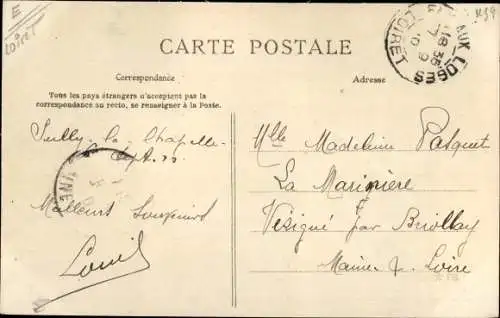 E
Loiret
CARTE POSTALE
Correspondance
Tous les pays étrangers n'acceptent pas la
correspondance au recto, se renseigner à la Poste.
Adresse
AUX LOGES
LOIRET
Sully-la-Chapelle
Meilleurs Souvenirs
Louis
Mlle Madeleine Pasquet
La Marinière
Vésigné par Briollay
Maine & Loire